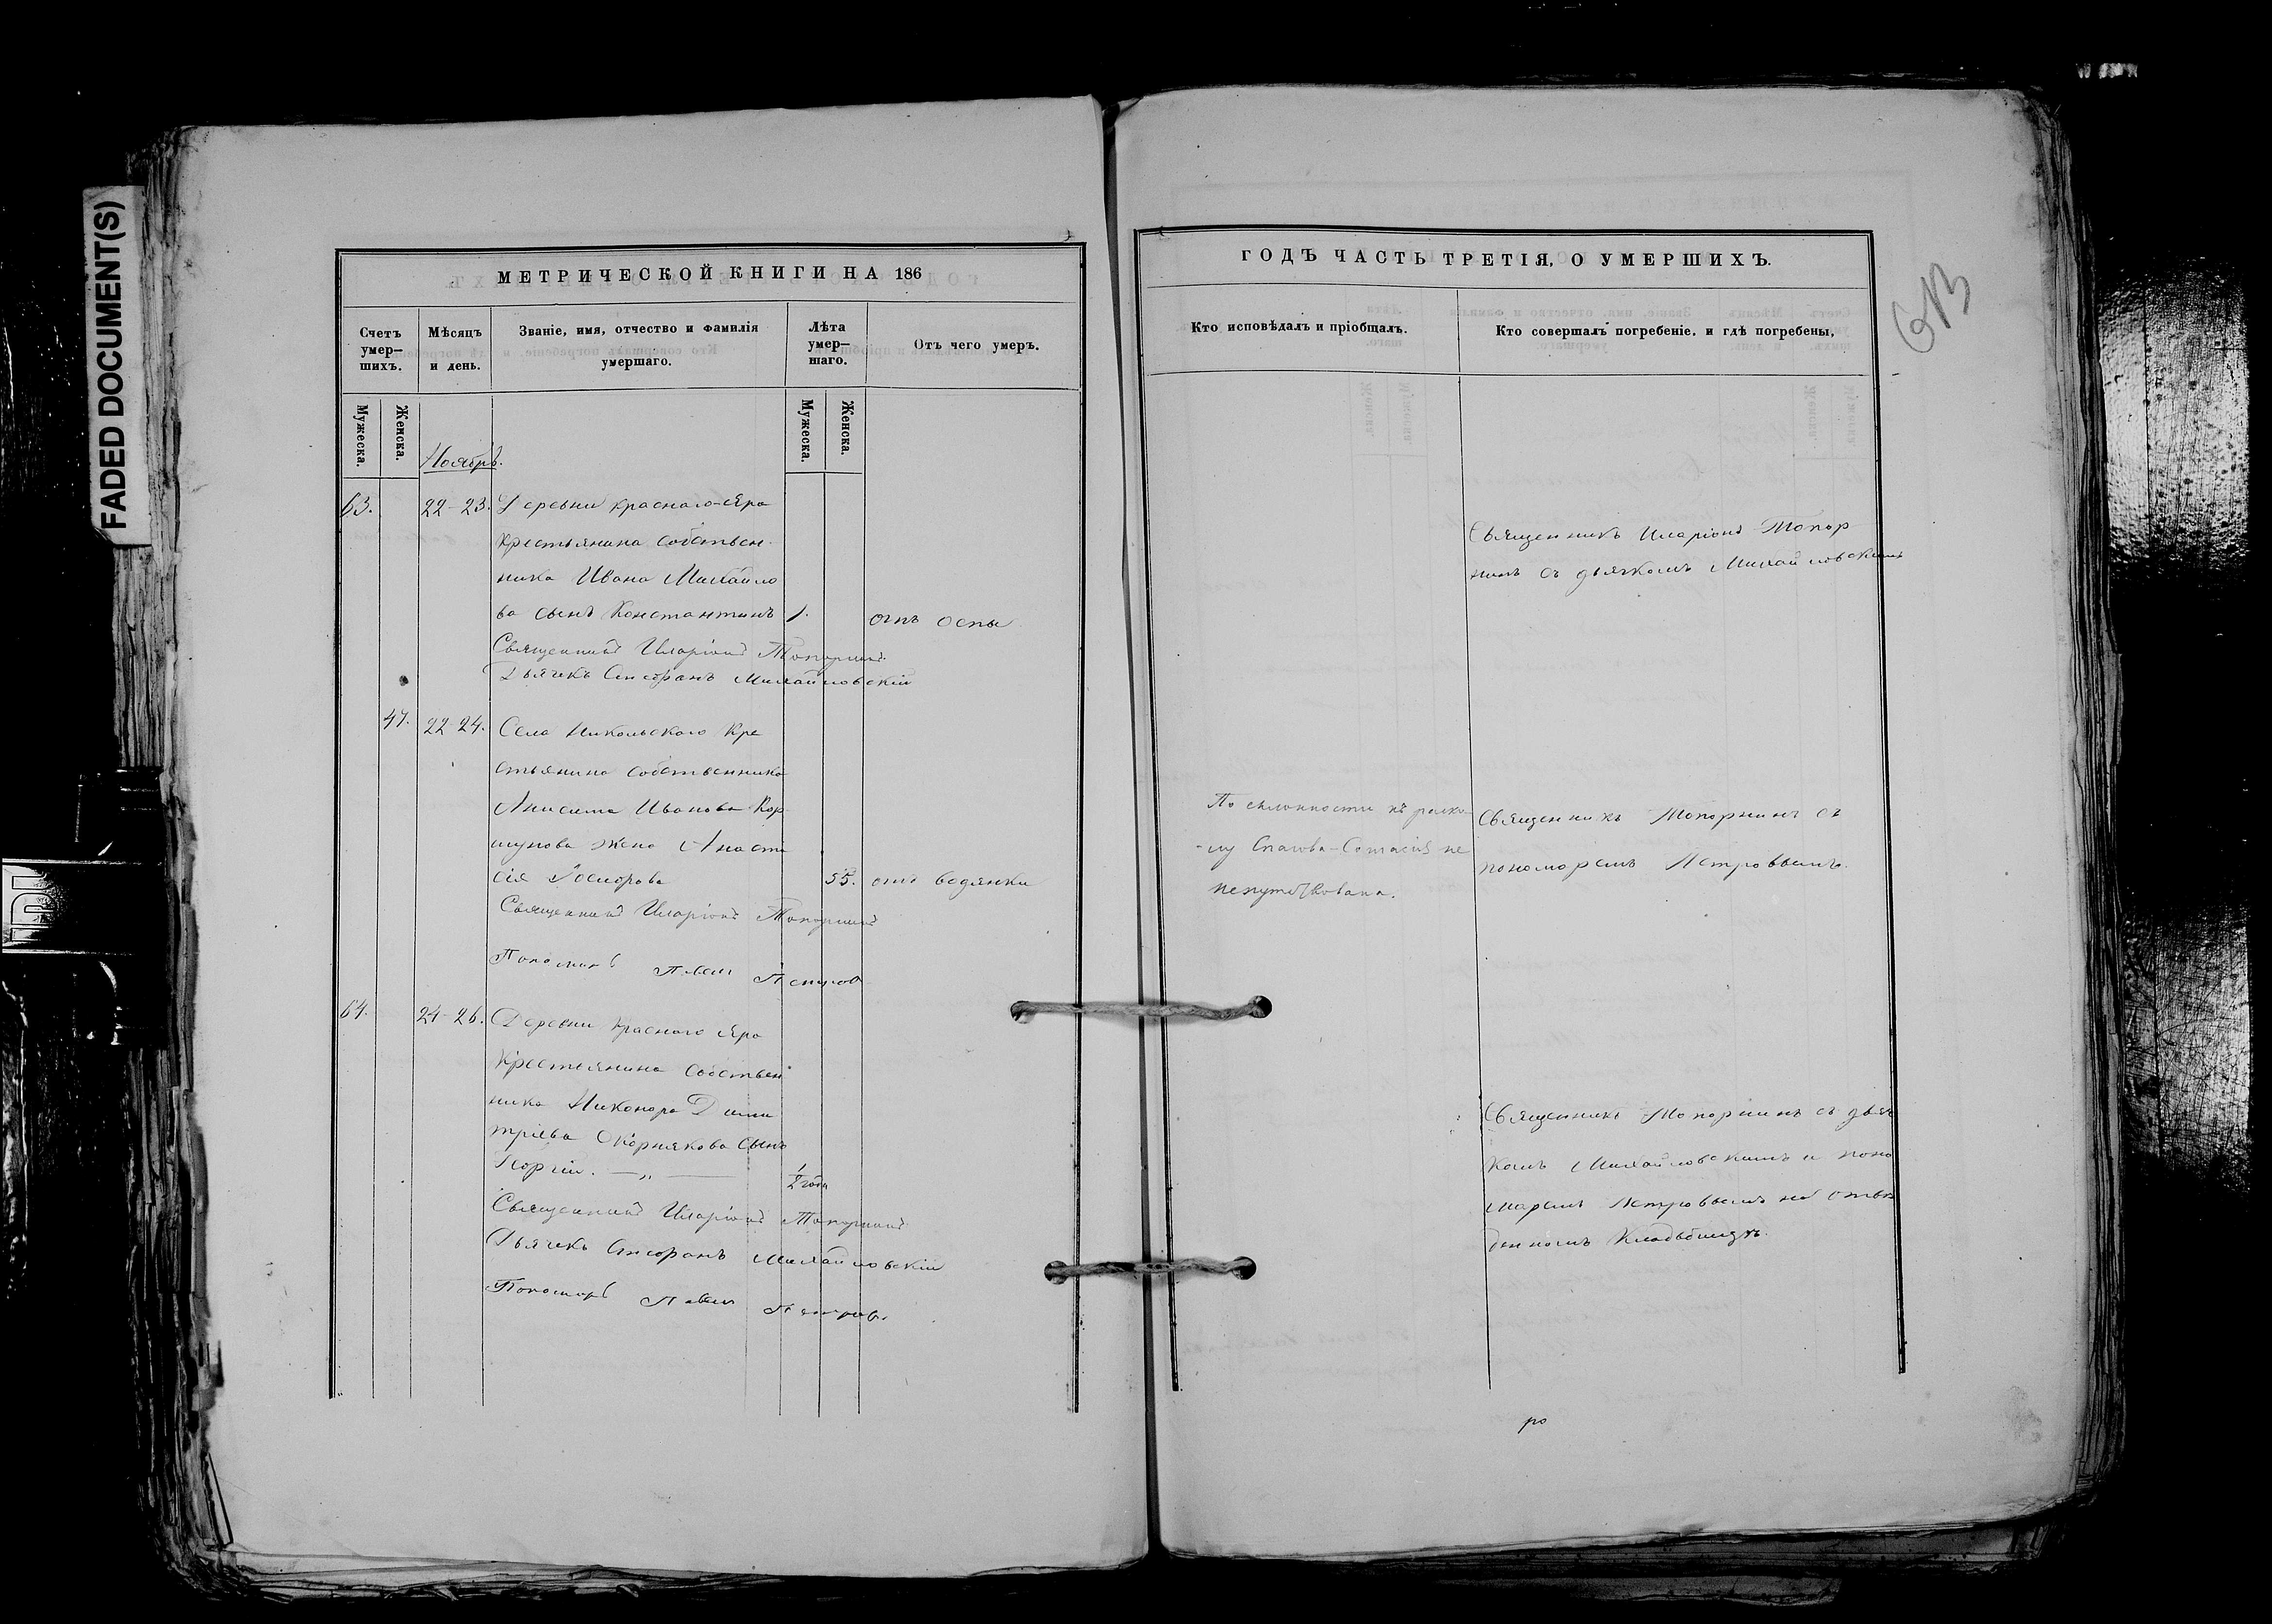 FADED DOCUMENT(S)
МЕТРИЧЕСКОЙ КНИГИ НА 186
Счетъ умер-
шихъ.
Мѣсяцъ
и день.
Званіе, имя, отчество и фамилія
умершаго.
Лѣта
умер-
шаго.
Отъ чего умеръ.
Мужеска.
Женска.
Ноябрь.
Мужеска.
Женска.
63.
22-23.
Деревни Краснаго-Яра
Крестьянина собствен-
ника Ивана Михайло
ва сынъ Константинъ
1.
отъ оспы
Священникъ Иларіонъ Топорнинъ.
Дьячекъ Стефанъ Михайловскій
47.
22-24.
Села Никольскаго Кре
стьянина собственника
Анисима Иванова Кор
шунова жена Анаста
сія Ѳедорова
55.
отъ водянки
Священникъ Иларіонъ Топорнинъ
Пономарь Павелъ Петровъ
64.
24-26.
Деревни Краснаго Яра
Крестьянина собствен
ника Никонора Дими
тріева Скорнякова сынъ
Георгій. — „ —
1/2 года
Священникъ Иларіонъ Топорнинъ
Дьячекъ Стефанъ Михайловскій
Пономарь Павелъ Петровъ.
ГОДЪ ЧАСТЬ ТРЕТІЯ, О УМЕРШИХЪ.
Кто исповѣдалъ и пріобщалъ.
Кто совершалъ погребеніе, и гдѣ погребены.
Священникъ Иларіонъ Топор
нинъ съ дьячкомъ Михайловскимъ
По склонности къ раско-
-лу Спасова-Согласія не
напутствована.
Священникъ Топорнинъ съ
пономаремъ Петровымъ.
Священникъ Топорнинъ съ дьяч
комъ Михайловскимъ и поно
маремъ Петровымъ на отве
денномъ Кладбищѣ.
ро